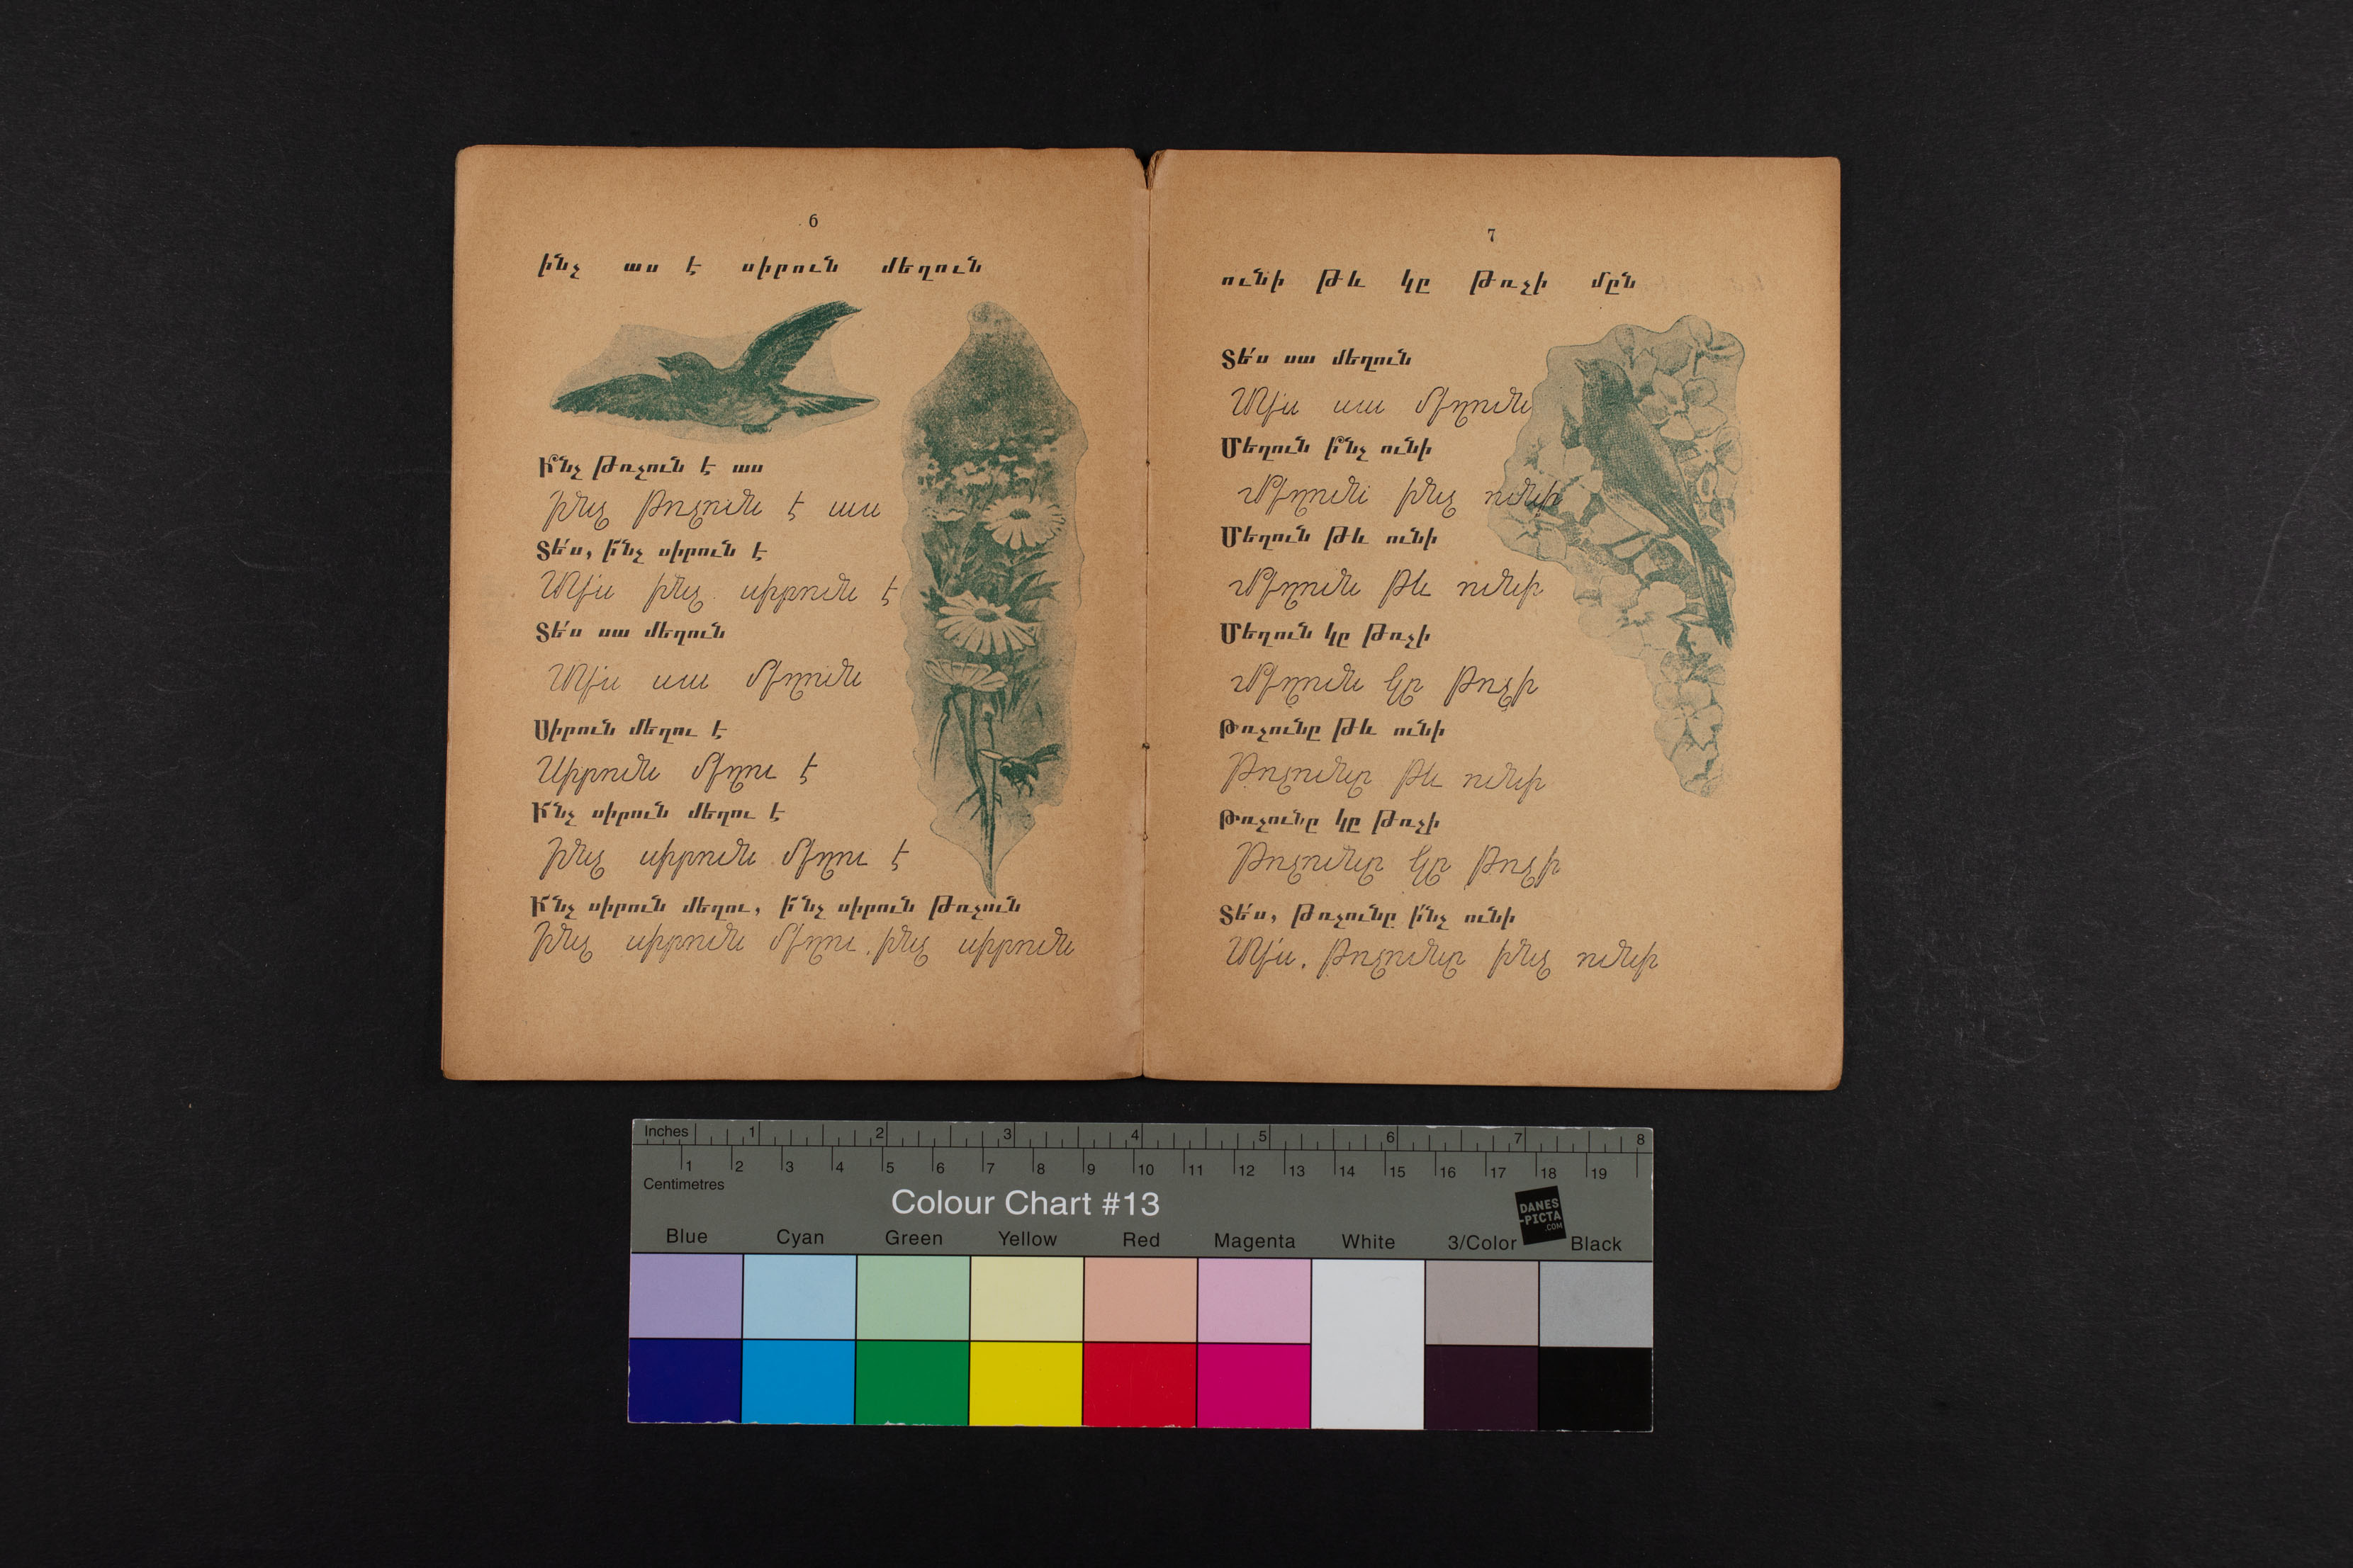 6
ինչ աս է սիրուն մեղուն
Ի՞նչ թռչուն է աս
Ինչ թռչուն է աս
Տե՛ս, ի՜նչ սիրուն է
Տե՛ս ինչ սիրուն է
Տե՛ս սա մեղուն
Տես սա մեղուն
Սիրուն մեղու է
Սիրուն մեղու է
Ի՜նչ սիրուն մեղու է
Ինչ սիրուն մեղու է
Ի՜նչ սիրուն մեղու, ի՜նչ սիրուն թռչուն
Ինչ սիրուն մեղու, ինչ սիրուն
7
ունի թև կը թռչի մըն
Տե՛ս սա մեղուն
Տե՛ս սա մեղուն
Մեղուն ի՞նչ ունի
Մեղուն ինչ ունի
Մեղուն թև ունի
Մեղուն թև ունի
Մեղուն կը թռչի
Մեղուն կը թռչի
Թռչունը թև ունի
Թռչունը թև ունի
Թռչունը կը թռչի
Թռչունը կը թռչի
Տե՛ս, թռչունը ի՞նչ ունի
Տե՛ս, թռչունը ինչ ունի
Inches 1 2 3 4 5 6 7 8
1 2 3 4 5 6 7 8 9 10 11 12 13 14 15 16 17 18 19
Centimetres
Colour Chart #13
DANES
-PICTA
.COM
Blue Cyan Green Yellow Red Magenta White 3/Color Black